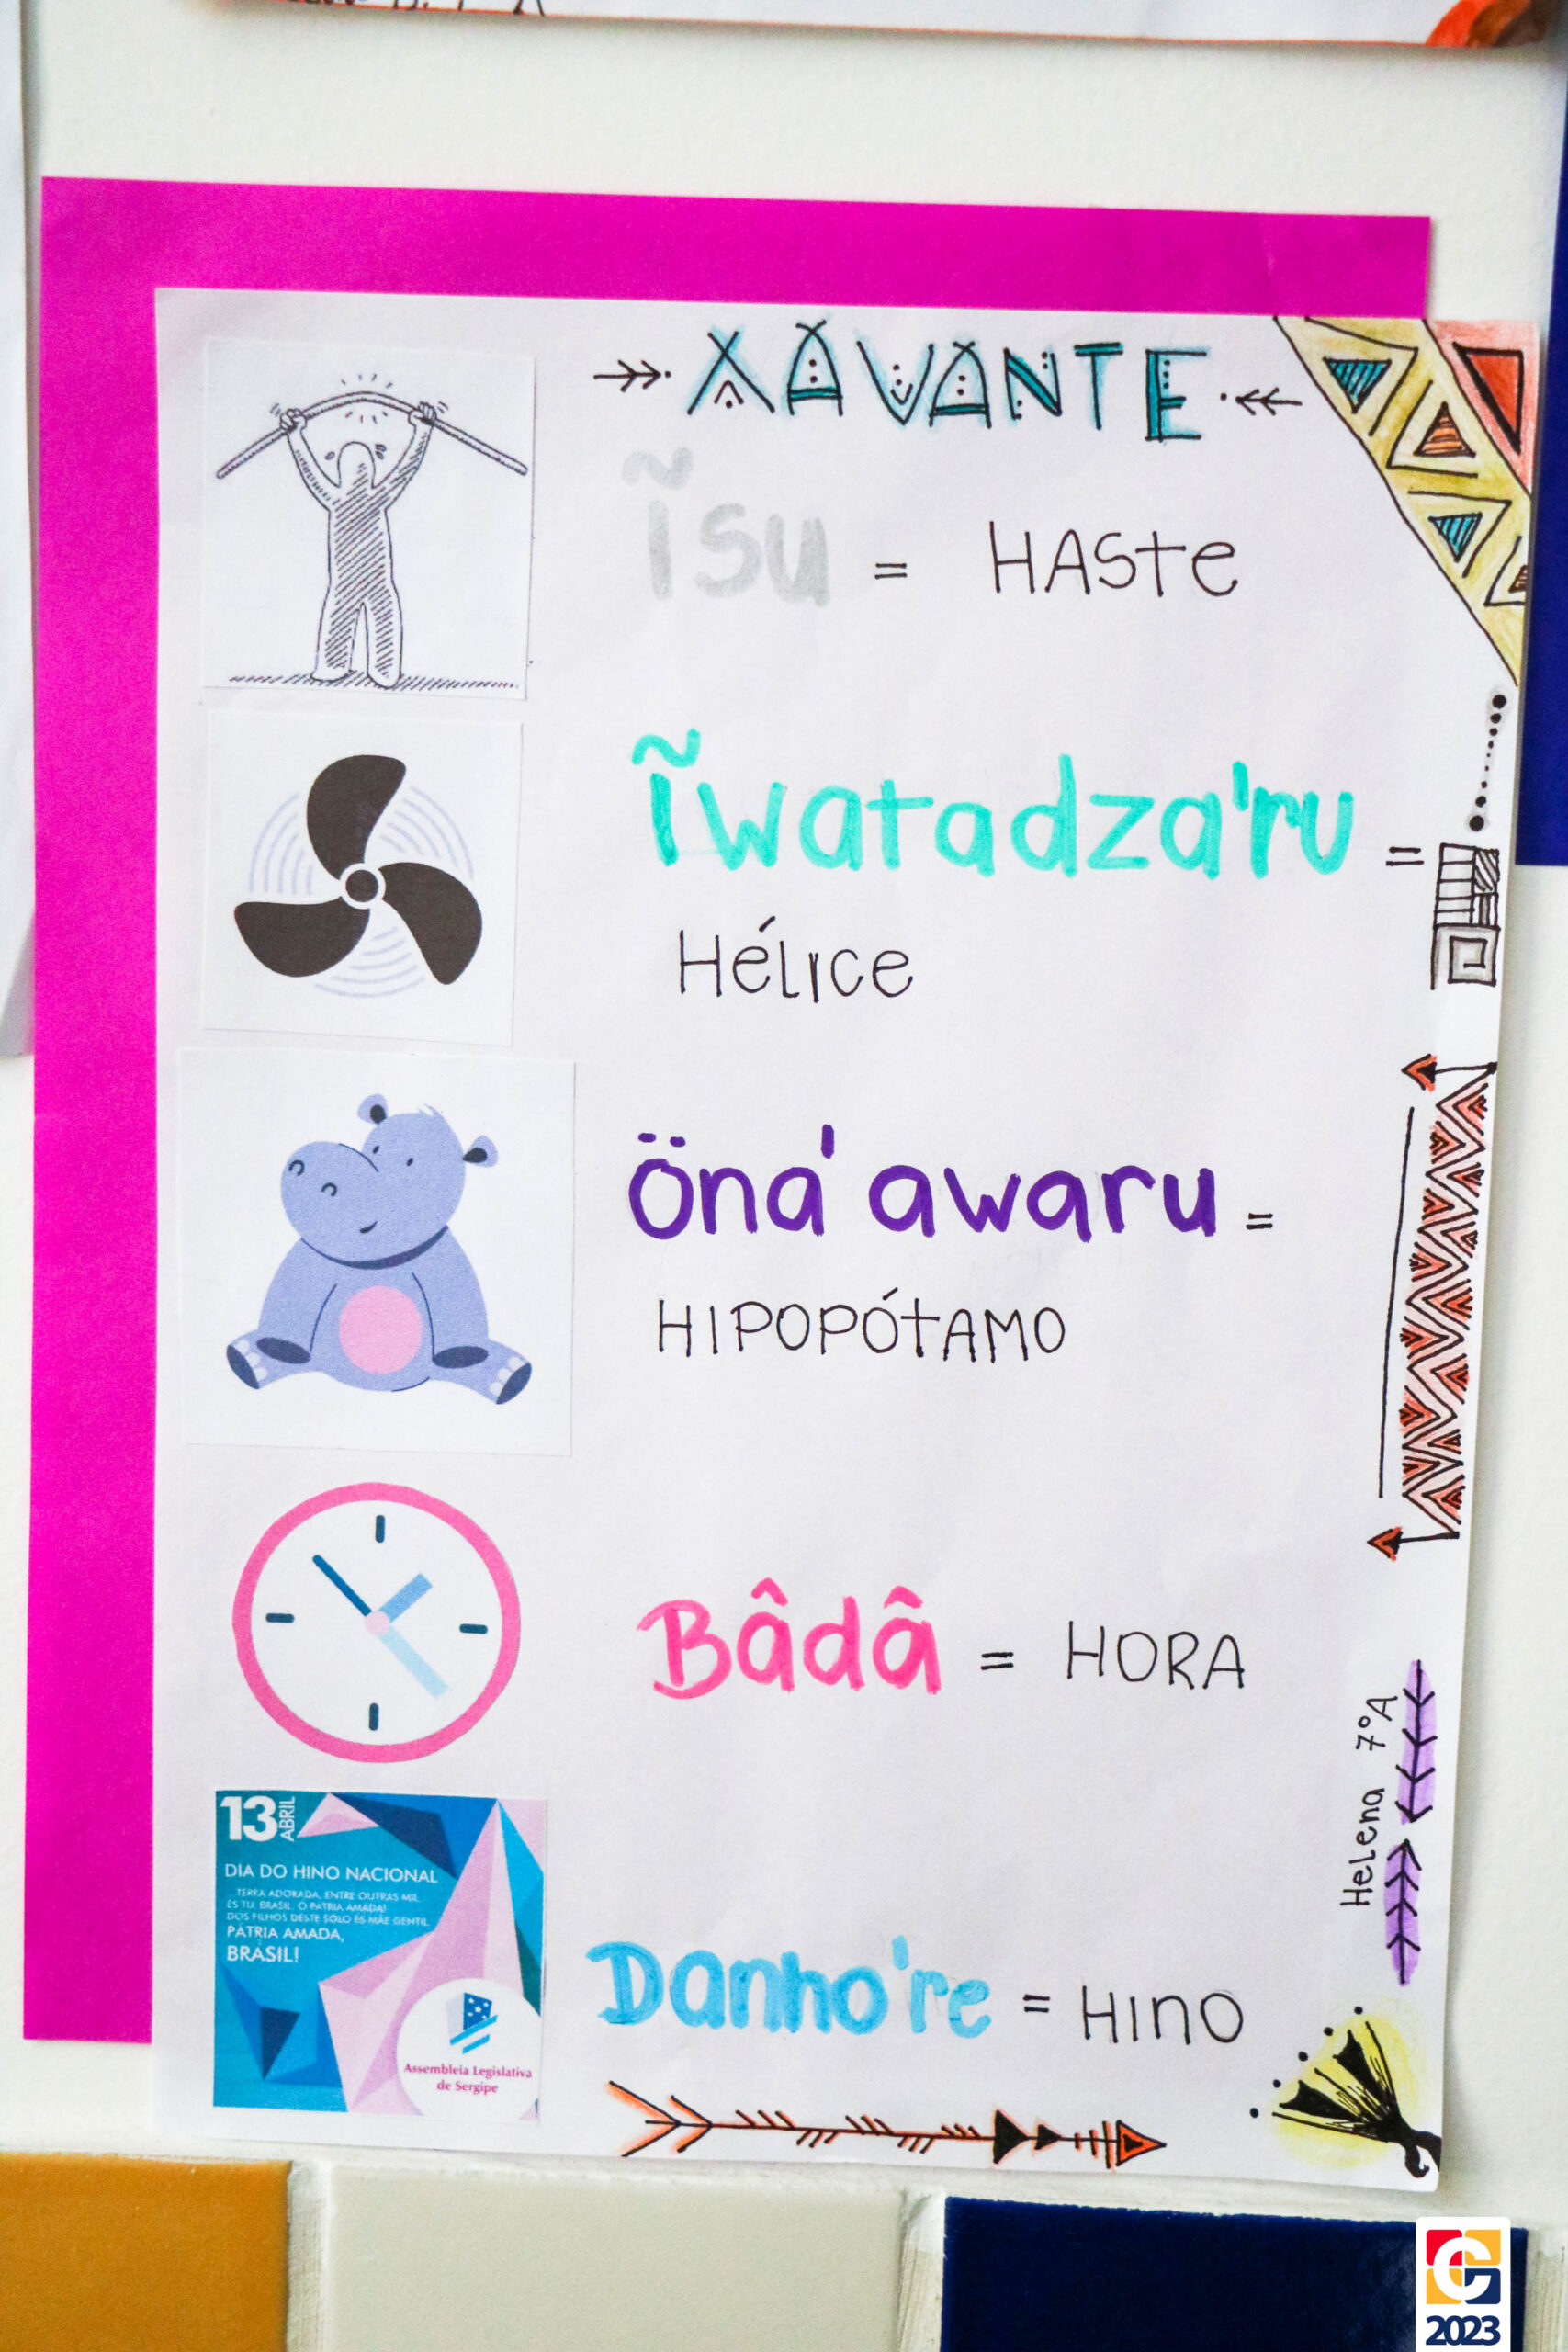 XAVANTE
Ĩsu = HASte
Ĩwatadza'ru =
Hélice
Öna'awaru =
HIPOPÓtAMO
Bâdâ = HORA
Helena 7ºA
13 ABRIL
DIA DO HINO NACIONAL
TERRA ADORADA, ENTRE OUTRAS MIL,
ÉS TU, BRASIL, Ó PÁTRIA AMADA!
DOS FILHOS DESTE SOLO ÉS MÃE GENTIL,
PÁTRIA AMADA,
BRASIL!
Assembleia Legislativa
de Sergipe
Danho're = HINO
2023